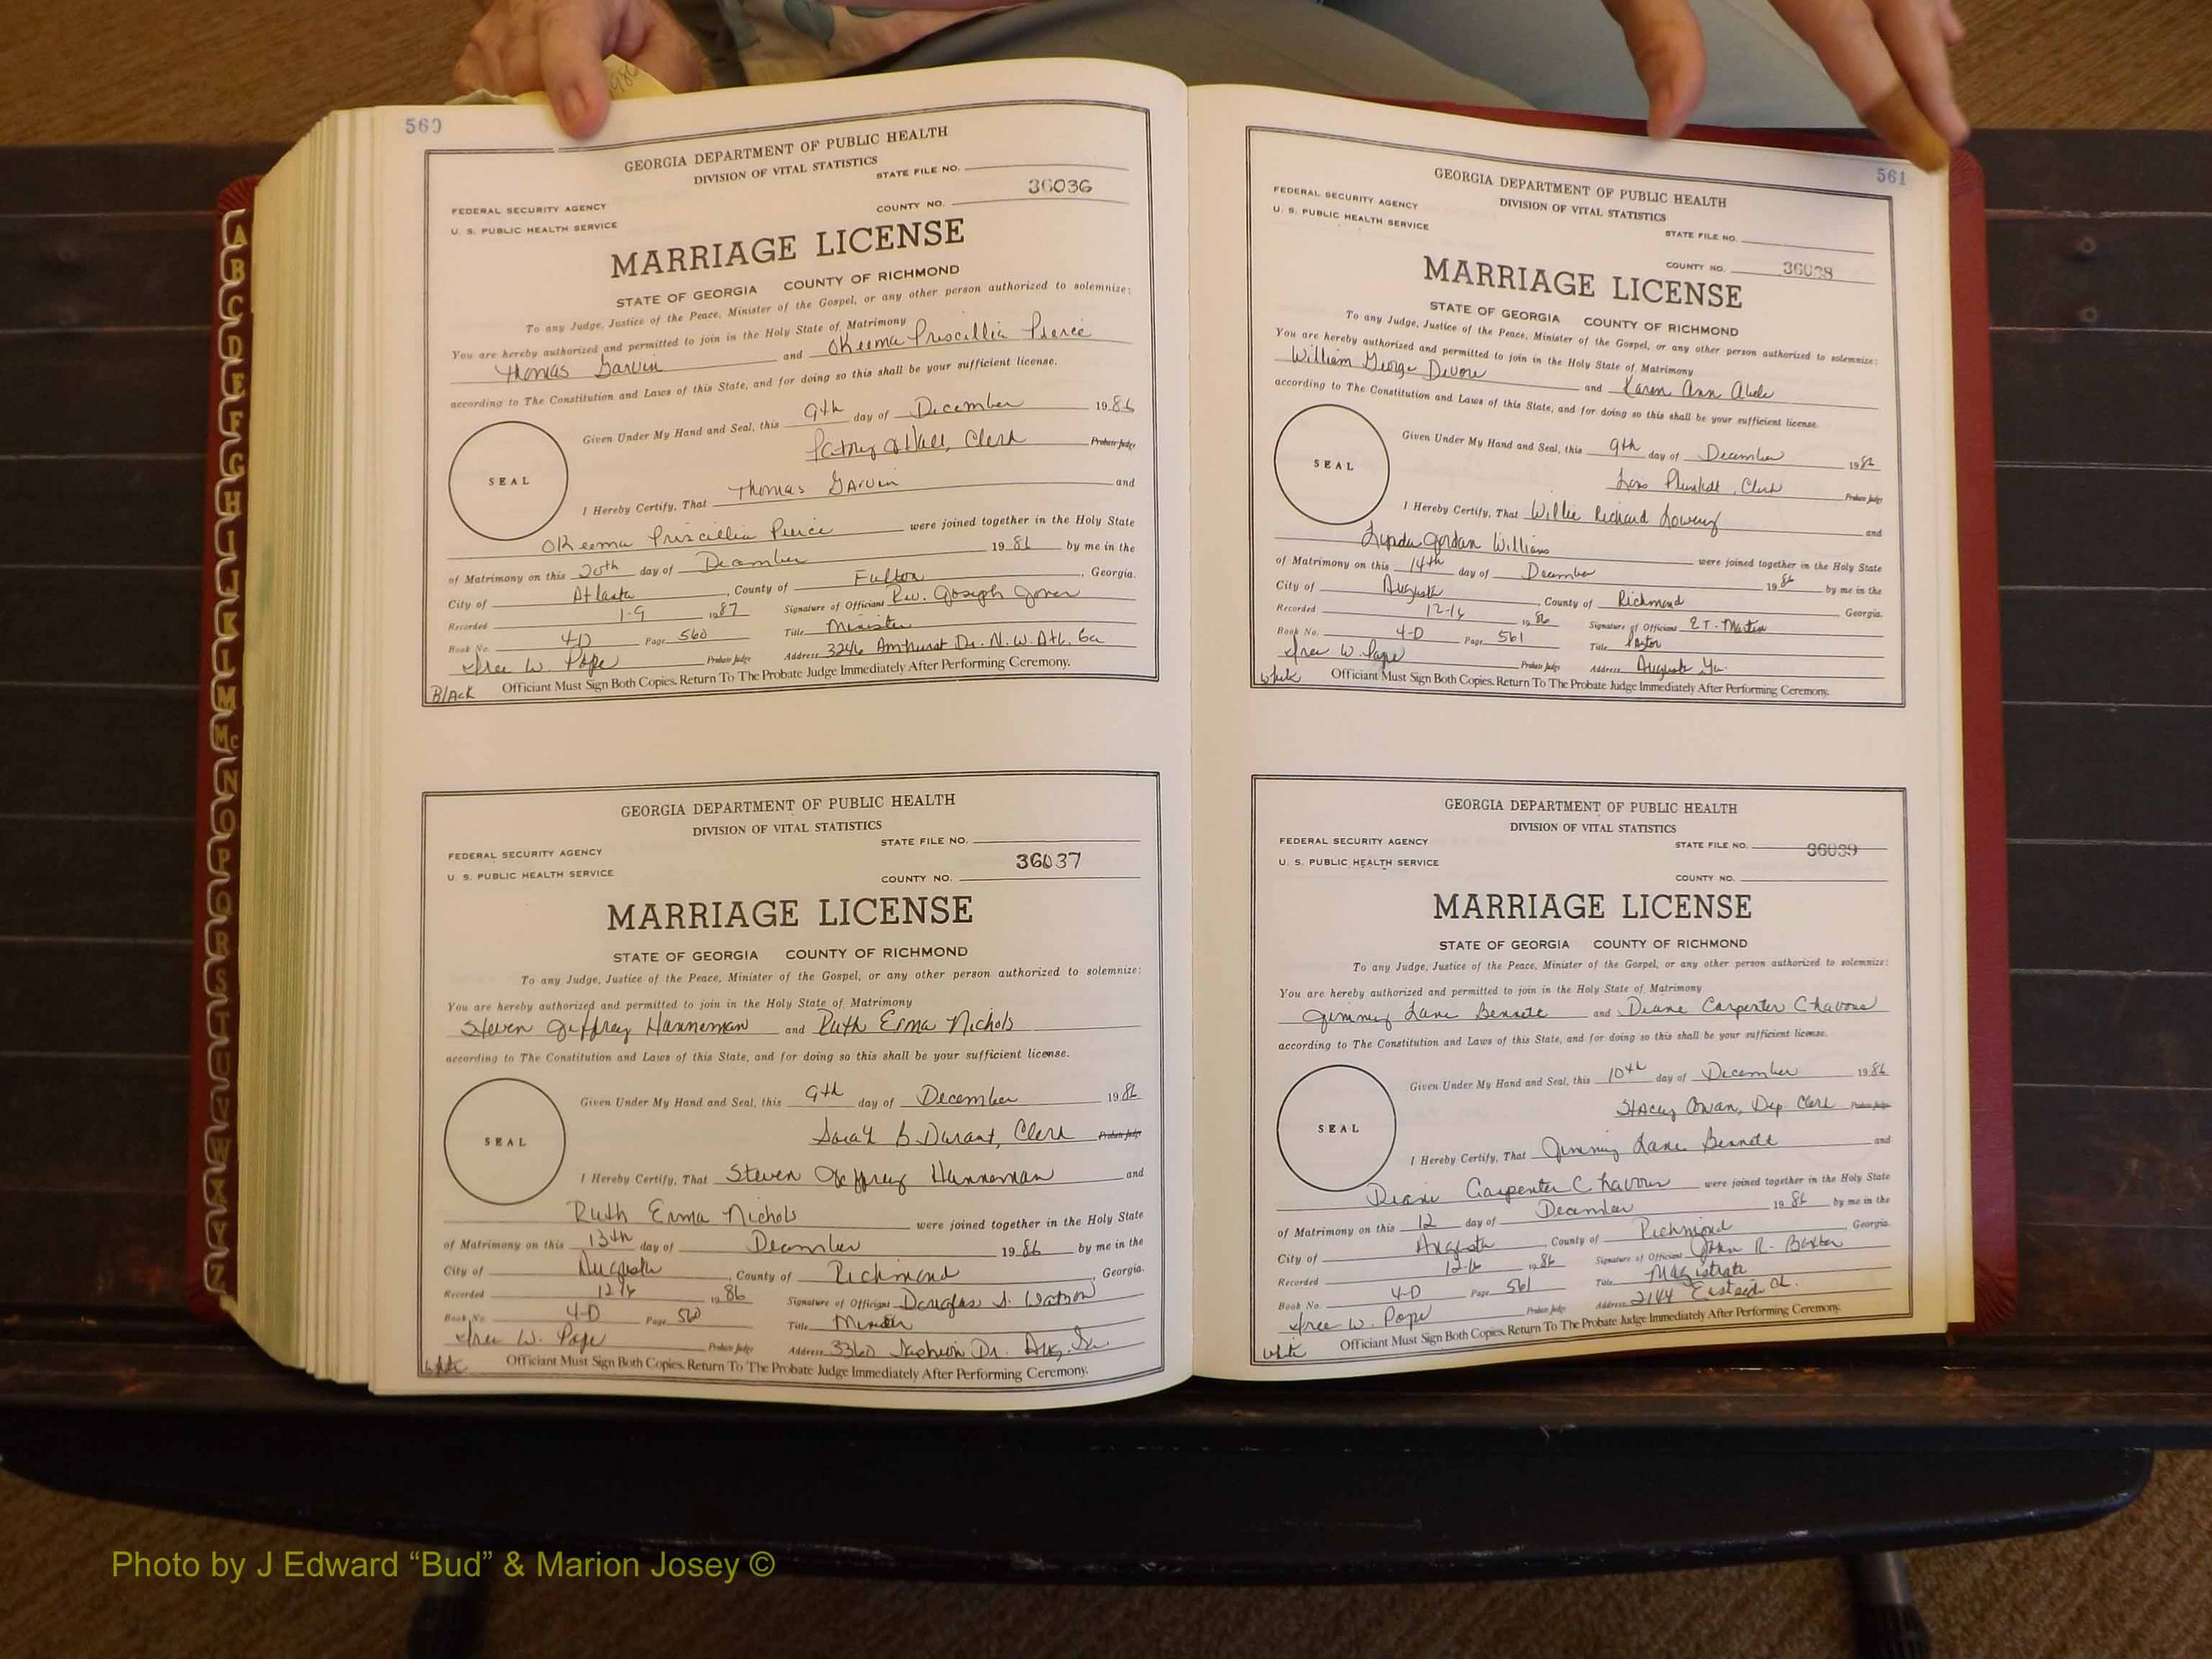 560
GEORGIA DEPARTMENT OF PUBLIC HEALTH
DIVISION OF VITAL STATISTICS
STATE FILE NO.
36036
FEDERAL SECURITY AGENCY
COUNTY NO.
U. S. PUBLIC HEALTH SERVICE
MARRIAGE LICENSE
STATE OF GEORGIA COUNTY OF RICHMOND
To any Judge, Justice of the Peace, Minister of the Gospel, or any other person authorized to solemnize:
You are hereby authorized and permitted to join in the Holy State of Matrimony
Thomas Garvin and OKeema Priscillia Pierce
according to The Constitution and Laws of this State, and for doing so this shall be your sufficient license.
Given Under My Hand and Seal, this 9th day of December 1986
Hall, Clerk Probate Judge
SEAL
I Hereby Certify, That Thomas Garvin and
OKeema Priscillia Pierce were joined together in the Holy State
of Matrimony on this 20th day of December 1986 by me in the
City of Atlanta, County of Fulton, Georgia.
Recorded 1-9 1987 Signature of Officiant Rev. Joseph Jones
Book No. 4-D Page 560 Title Minister
W. Pope Probate Judge Address 3246 Amhurst Dr. N.W. Atl. Ga
BLACK Officiant Must Sign Both Copies. Return To The Probate Judge Immediately After Performing Ceremony.
GEORGIA DEPARTMENT OF PUBLIC HEALTH
DIVISION OF VITAL STATISTICS
STATE FILE NO.
FEDERAL SECURITY AGENCY
36037
U. S. PUBLIC HEALTH SERVICE
COUNTY NO.
MARRIAGE LICENSE
STATE OF GEORGIA COUNTY OF RICHMOND
To any Judge, Justice of the Peace, Minister of the Gospel, or any other person authorized to solemnize:
You are hereby authorized and permitted to join in the Holy State of Matrimony
Steven Jeffrey Hanneman and Ruth Erma Nichols
according to The Constitution and Laws of this State, and for doing so this shall be your sufficient license.
Given Under My Hand and Seal, this 9th day of December 1986
Sarah B. Durant, Clerk Probate Judge
SEAL
I Hereby Certify, That Steven Jeffrey Hanneman and
Ruth Erma Nichols were joined together in the Holy State
of Matrimony on this 13th day of December 1986 by me in the
City of Augusta, County of Richmond, Georgia.
Recorded 12-16 1986 Signature of Officiant Douglas S. Watson
Book No. 4-D Page 560 Title Minister
W. Pope Probate Judge Address 3360 Dr. Aug. Ga
White Officiant Must Sign Both Copies. Return To The Probate Judge Immediately After Performing Ceremony.
561
GEORGIA DEPARTMENT OF PUBLIC HEALTH
DIVISION OF VITAL STATISTICS
FEDERAL SECURITY AGENCY
U. S. PUBLIC HEALTH SERVICE
STATE FILE NO.
COUNTY NO. 36038
MARRIAGE LICENSE
STATE OF GEORGIA COUNTY OF RICHMOND
To any Judge, Justice of the Peace, Minister of the Gospel, or any other person authorized to solemnize:
You are hereby authorized and permitted to join in the Holy State of Matrimony
William George Devore and Karen Ann Abele
according to The Constitution and Laws of this State, and for doing so this shall be your sufficient license.
Given Under My Hand and Seal, this 9th day of December 1986
Plunkett, Clerk Probate Judge
SEAL
I Hereby Certify, That Willie Richard Lowery and
Lynda Jordan Williams were joined together in the Holy State
of Matrimony on this 14th day of December 1986 by me in the
City of Augusta, County of Richmond Georgia.
Recorded 12-16 1986 Signature of Officiant E. T. Martin
Book No. 4-D Page 561 Title Pastor
W. Pope Probate Judge Address Augusta Ga.
White Officiant Must Sign Both Copies. Return To The Probate Judge Immediately After Performing Ceremony.
GEORGIA DEPARTMENT OF PUBLIC HEALTH
DIVISION OF VITAL STATISTICS
FEDERAL SECURITY AGENCY
STATE FILE NO. 36039
U. S. PUBLIC HEALTH SERVICE
COUNTY NO.
MARRIAGE LICENSE
STATE OF GEORGIA COUNTY OF RICHMOND
To any Judge, Justice of the Peace, Minister of the Gospel, or any other person authorized to solemnize:
You are hereby authorized and permitted to join in the Holy State of Matrimony
Jimmy Lane Bennett and Diane Carpenter Chavous
according to The Constitution and Laws of this State, and for doing so this shall be your sufficient license.
Given Under My Hand and Seal, this 10th day of December 1986
Stacey Cowan, Dep Clerk Probate Judge
SEAL
I Hereby Certify, That Jimmy Lane Bennett and
Diane Carpenter Chavous were joined together in the Holy State
of Matrimony on this 12 day of December 1986 by me in the
City of Augusta, County of Richmond Georgia.
Recorded 12-16 1986 Signature of Officiant John R. Baxter
Book No. 4-D Page 561 Title Magistrate
W. Pope Probate Judge Address 2144
White Officiant Must Sign Both Copies. Return To The Probate Judge Immediately After Performing Ceremony.
A
B
C
D
E
F
G
H
I
J
K
L
M
Mc
N
O
P
Q
R
S
T
U
V
W
X
Y
Z
Photo by J Edward “Bud” & Marion Josey ©